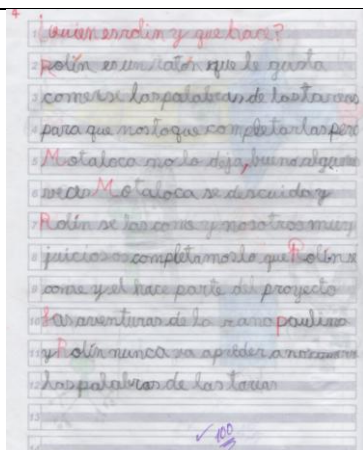 4
1 ¿quien esrolin y que hace?
2 Rolín es un ratón que le gusta
3 comerse laspalabras de lastareas
4 para que nostoque completarlas per
5 Motaloca no lo deja, bueno algunas
6 veces Motaloca se descuida y
7 Rolín se las come y nosotros muy
8 juiciosos completamoslo que Rolín se
9 come y el hace parte del proyecto
10 las aventuras de la rana paulina
11 y Rolín nunca va apreder a no comerse
12 las palabras de las tareas
13
✓ 100